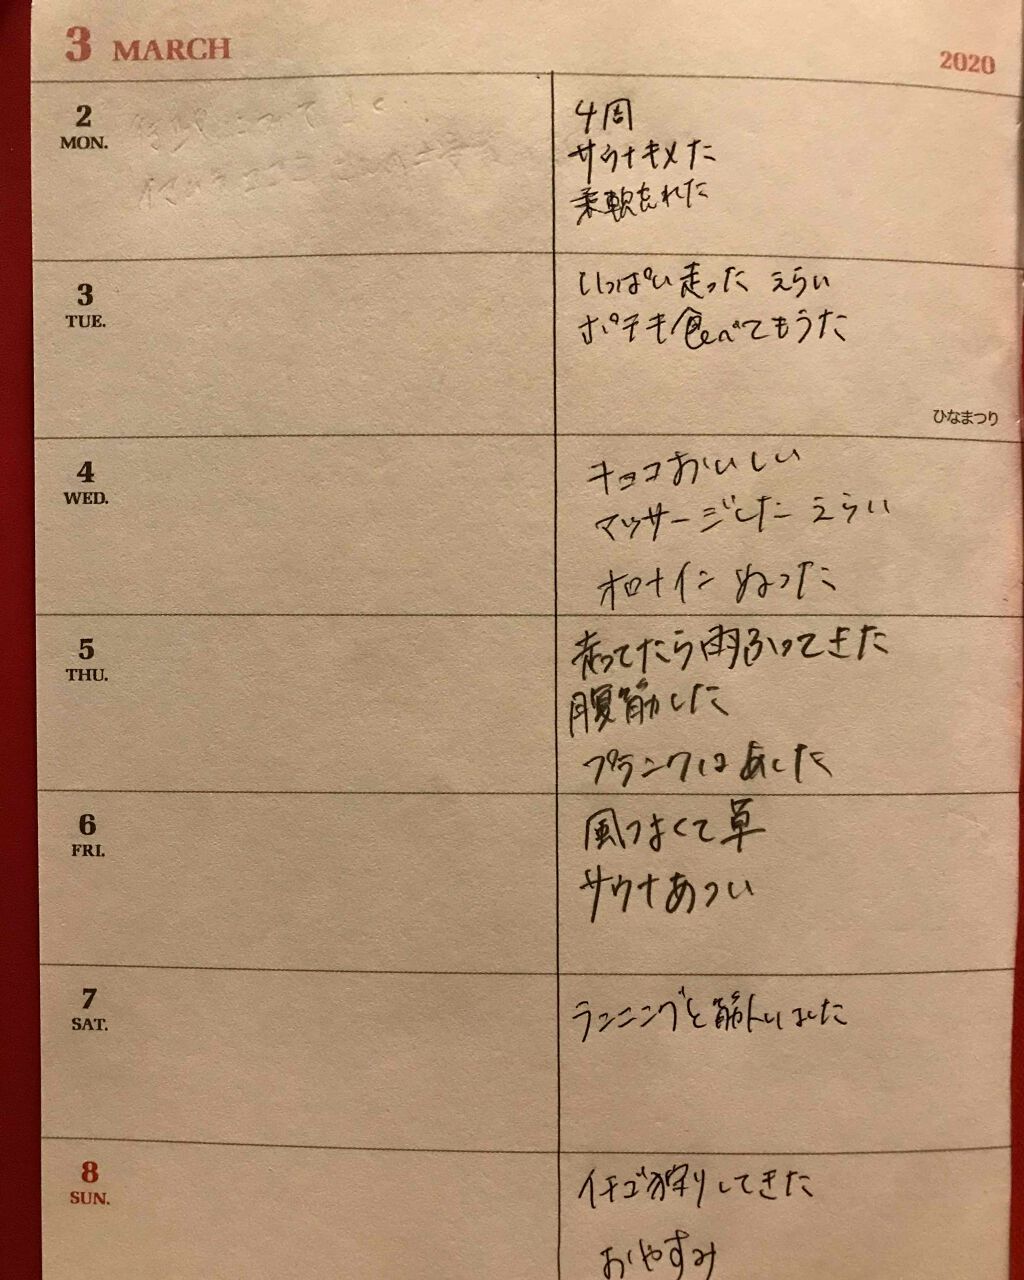 3 MARCH
2020
2
MON.
4周
サウナキメた
柔軟忘れた
3
TUE.
いっぱい走った えらい
ポテチ食べてもうた
ひなまつり
4
WED.
チョコおいしい
マッサージした えらい
オロナイン ぬった
5
THU.
走ってたら雨ふってきた
腹筋した
プランクはあした
6
FRI.
風つよくて草
サウナあつい
7
SAT.
ランニングと筋トレしました
8
SUN.
イチゴ狩りしてきた
おやすみ